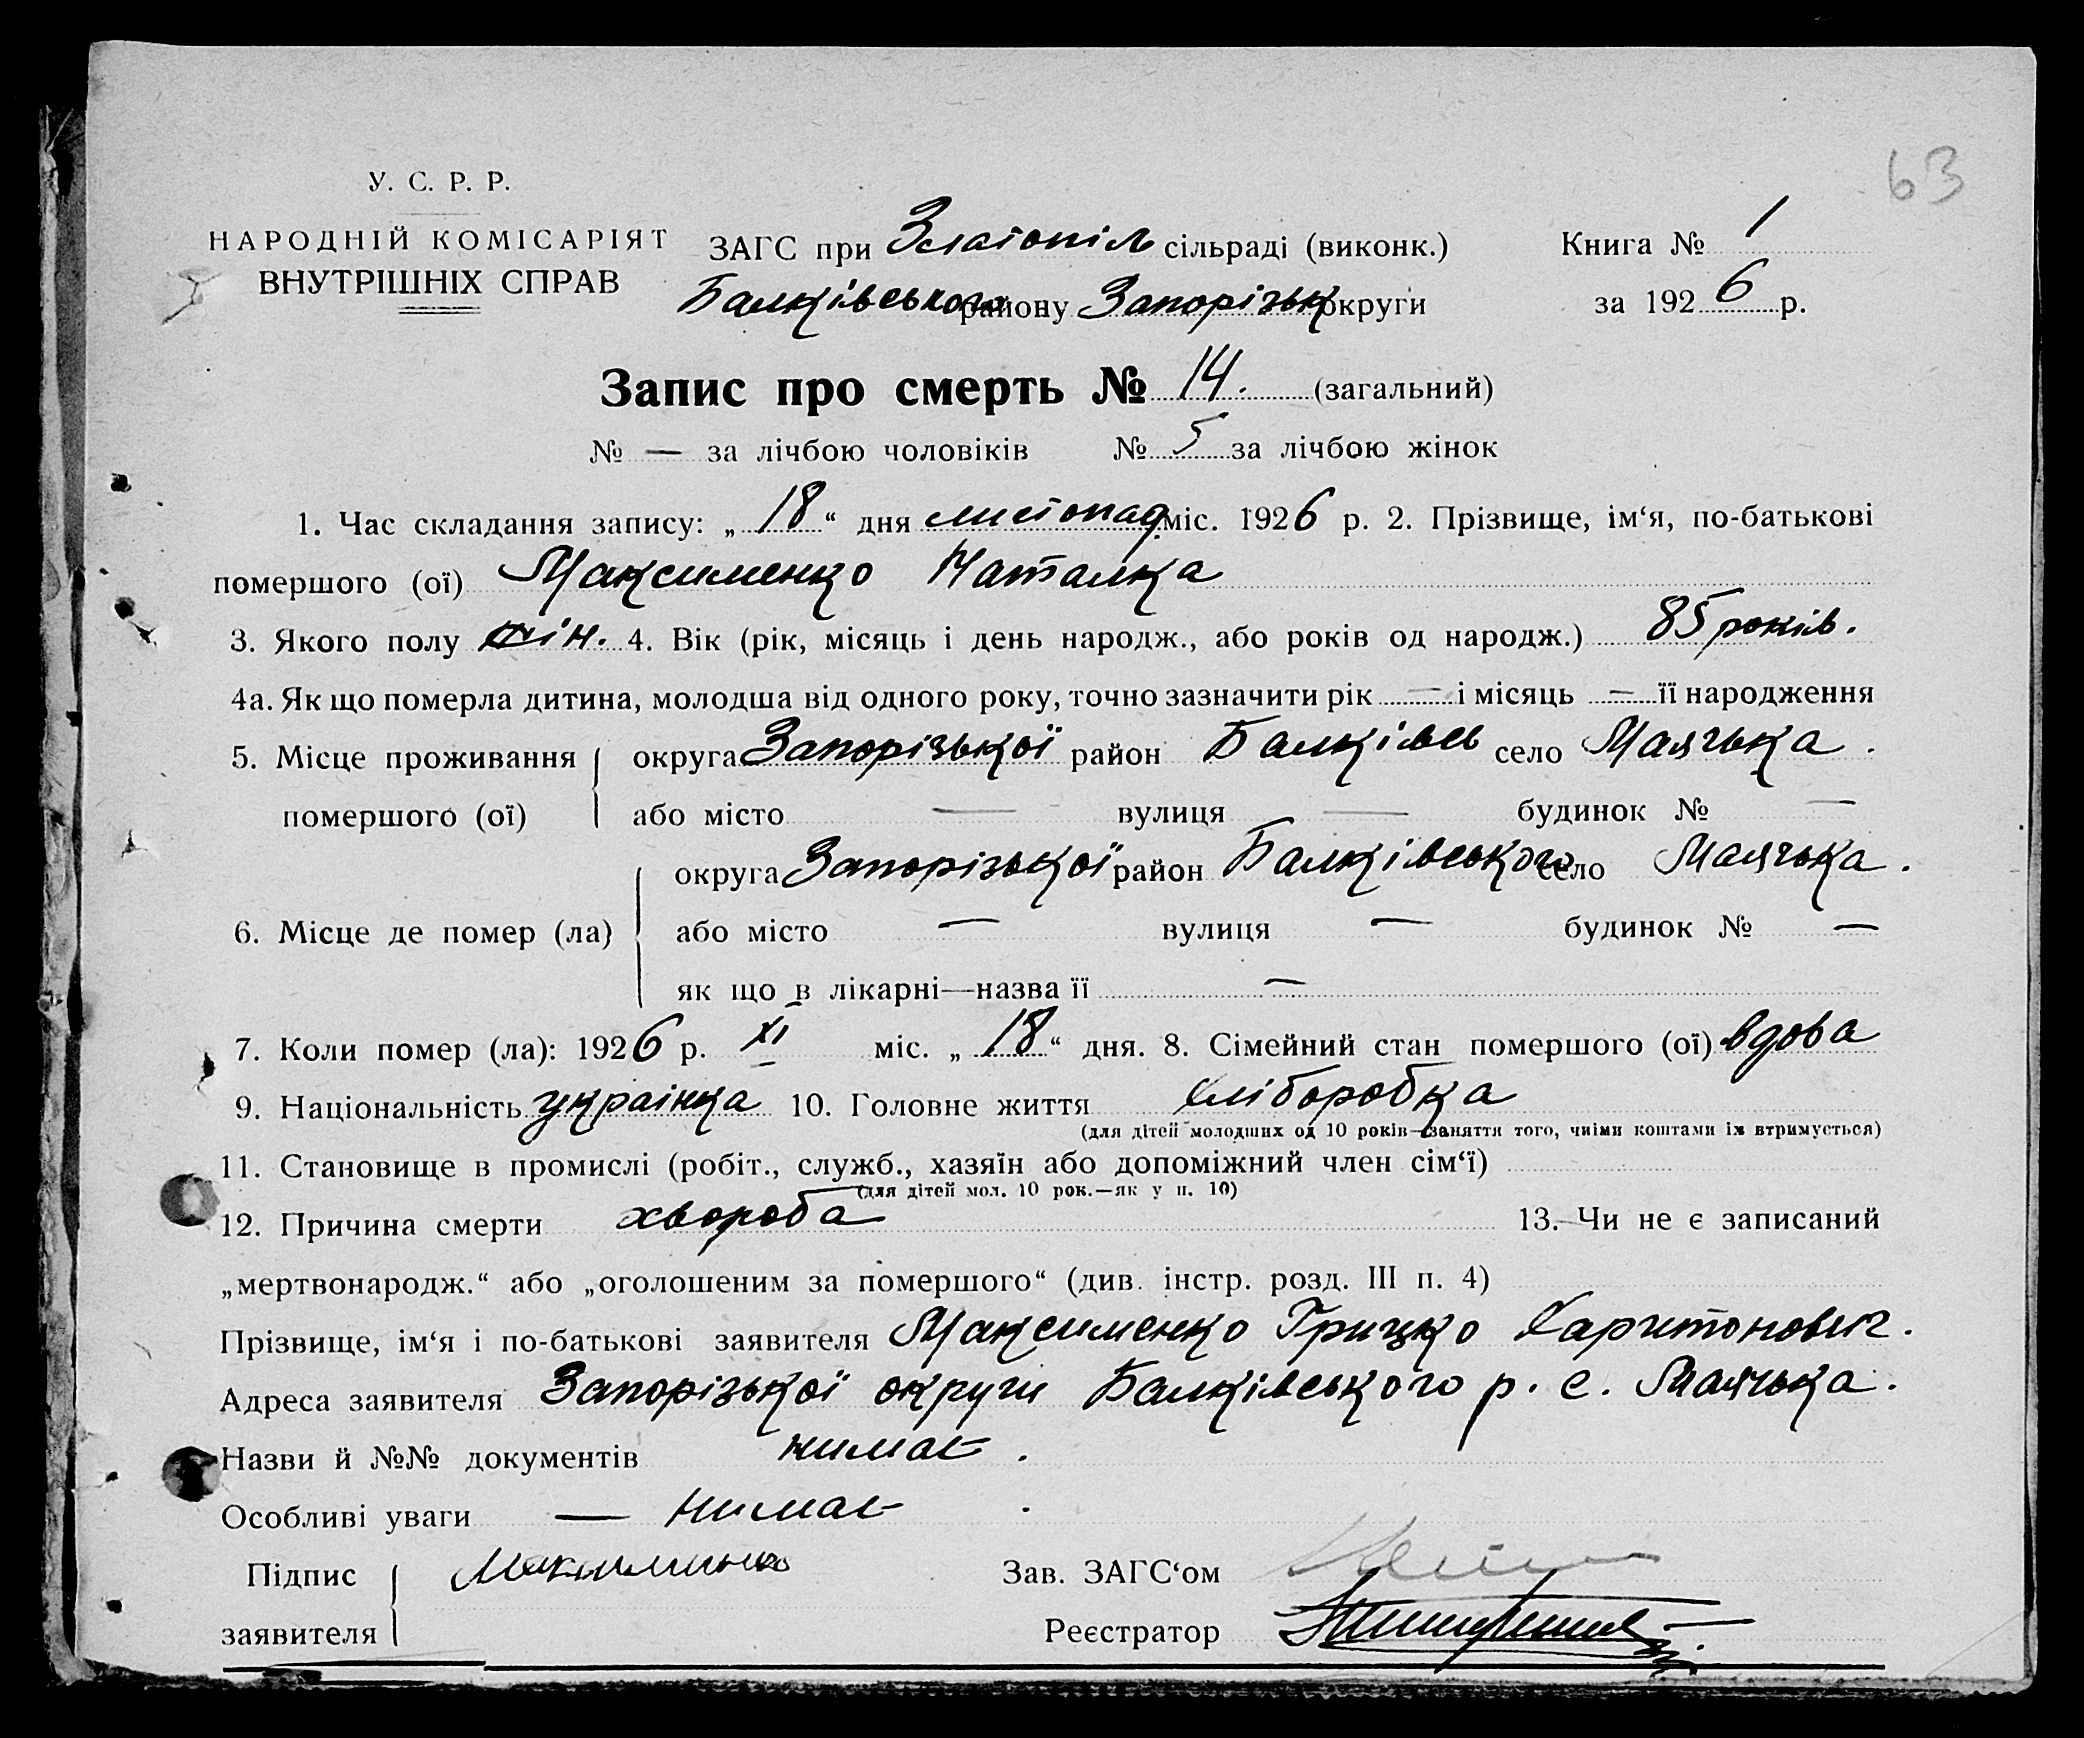 63
У. С. Р. Р.
НАРОДНІЙ КОМІСАРІЯТ
ВНУТРІШНІХ СПРАВ
ЗАГС при Златопіль сільраді (виконк.) Книга № 1
Балківського району Запорізьк округи за 1926 р.
Запис про смерть № 14. (загальний)
№ — за лічбою чоловіків № 5 за лічбою жінок
1. Час складання запису: „18“ дня листопад міс. 1926 р. 2. Прізвище, ім‘я, по-батькові
помершого (ої) Максименко Наталка
3. Якого полу жін. 4. Вік (рік, місяць і день народж., або років од народж.) 85 років.
4а. Як що померла дитина, молодша від одного року, точно зазначити рік — і місяць — її народження
5. Місце проживання округа Запорізької район Балківсь село Маячька.
помершого (ої) або місто — вулиця — будинок № —
округа Запорізької район Балківського село Маячька.
6. Місце де помер (ла) або місто — вулиця — будинок № —
як що в лікарні—назва її —
7. Коли помер (ла): 1926 р. XI міс. „18“ дня. 8. Сімейний стан помершого (ої) вдова
9. Національність украінка 10. Головне життя хліборобка
(для дітей молодших од 10 років—заняття того, чиїми коштами їх втримується)
11. Становище в промислі (робіт., служб., хазяїн або допоміжний член сім‘ї)
(для дітей мол. 10 рок.—як у п. 10)
12. Причина смерти хвороба 13. Чи не є записаний
„мертвонародж.“ або „оголошеним за помершого“ (див. інстр. розд. III п. 4)
Прізвище, ім‘я і по-батькові заявителя Максименко Грицко Харитонович.
Адреса заявителя Запорізької округи Балківського р. с. Маячька.
Назви й №№ документів нимає.
Особливі уваги — нимає.
Підпис Зав. ЗАГС‘ом
заявителя Реєстратор